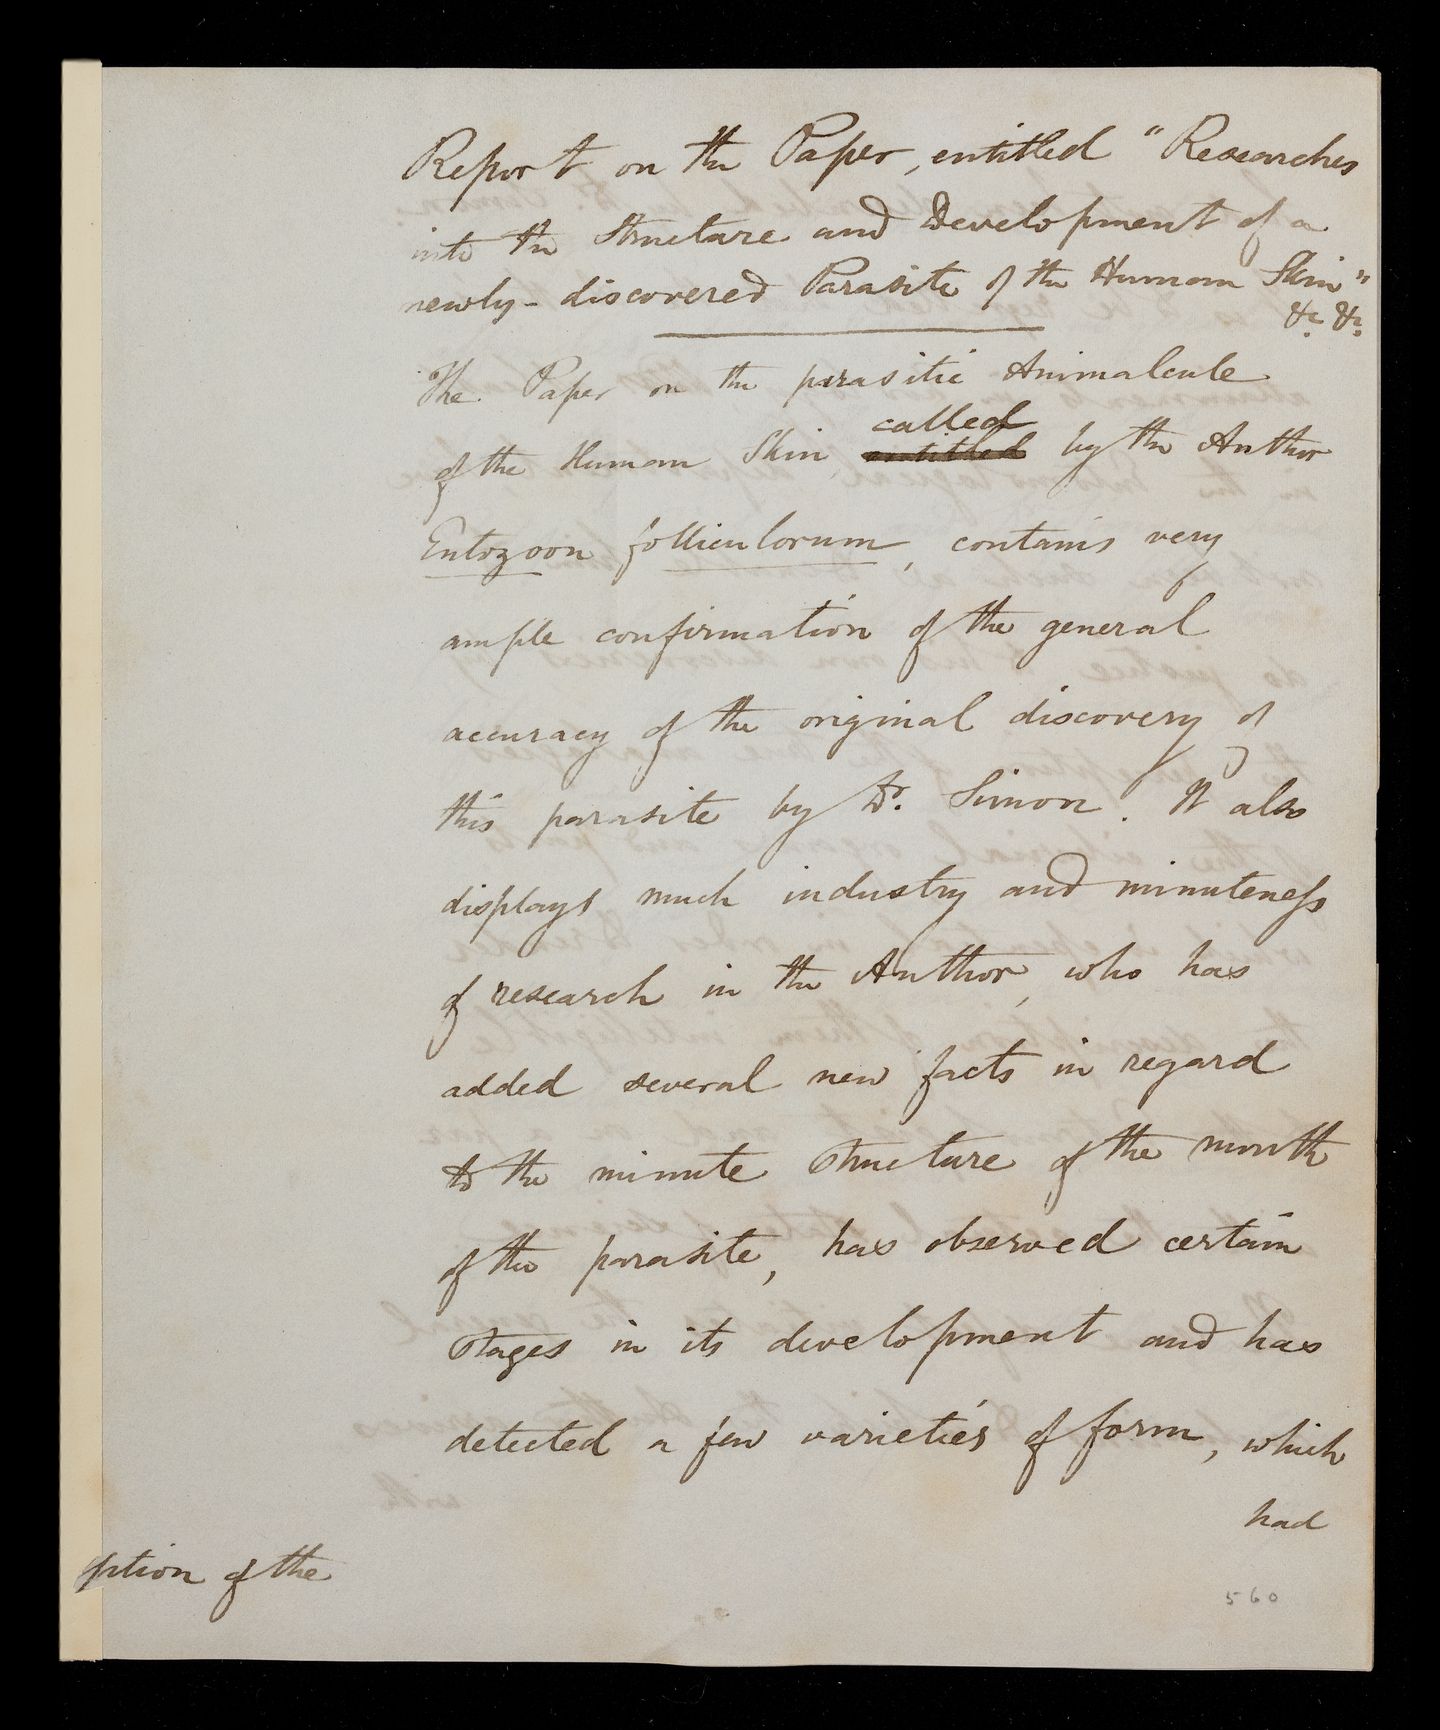 Report on the Paper, entitled "Researches
into the Structure and Development of a
newly-discovered Parasite of the Human Skin"
&c. &c.
The Paper on the parasitic Animalcule
called
of the Human Skin, entitled by the Author
Entozoon folliculorum, contains very
ample confirmation of the general
accuracy of the original discovery of
this parasite by Dr. Simon. It also
displays much industry and minuteness
of research in the Author, who has
added several new facts in regard
to the minute structure of the mouth
of the parasite, has observed certain
stages in its development and has
detected a few varieties of form, which
had
ption of the
560